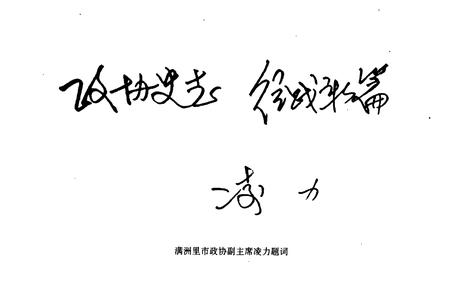 政协史志 继往开来篇
凌力
满洲里市政协副主席凌力题词